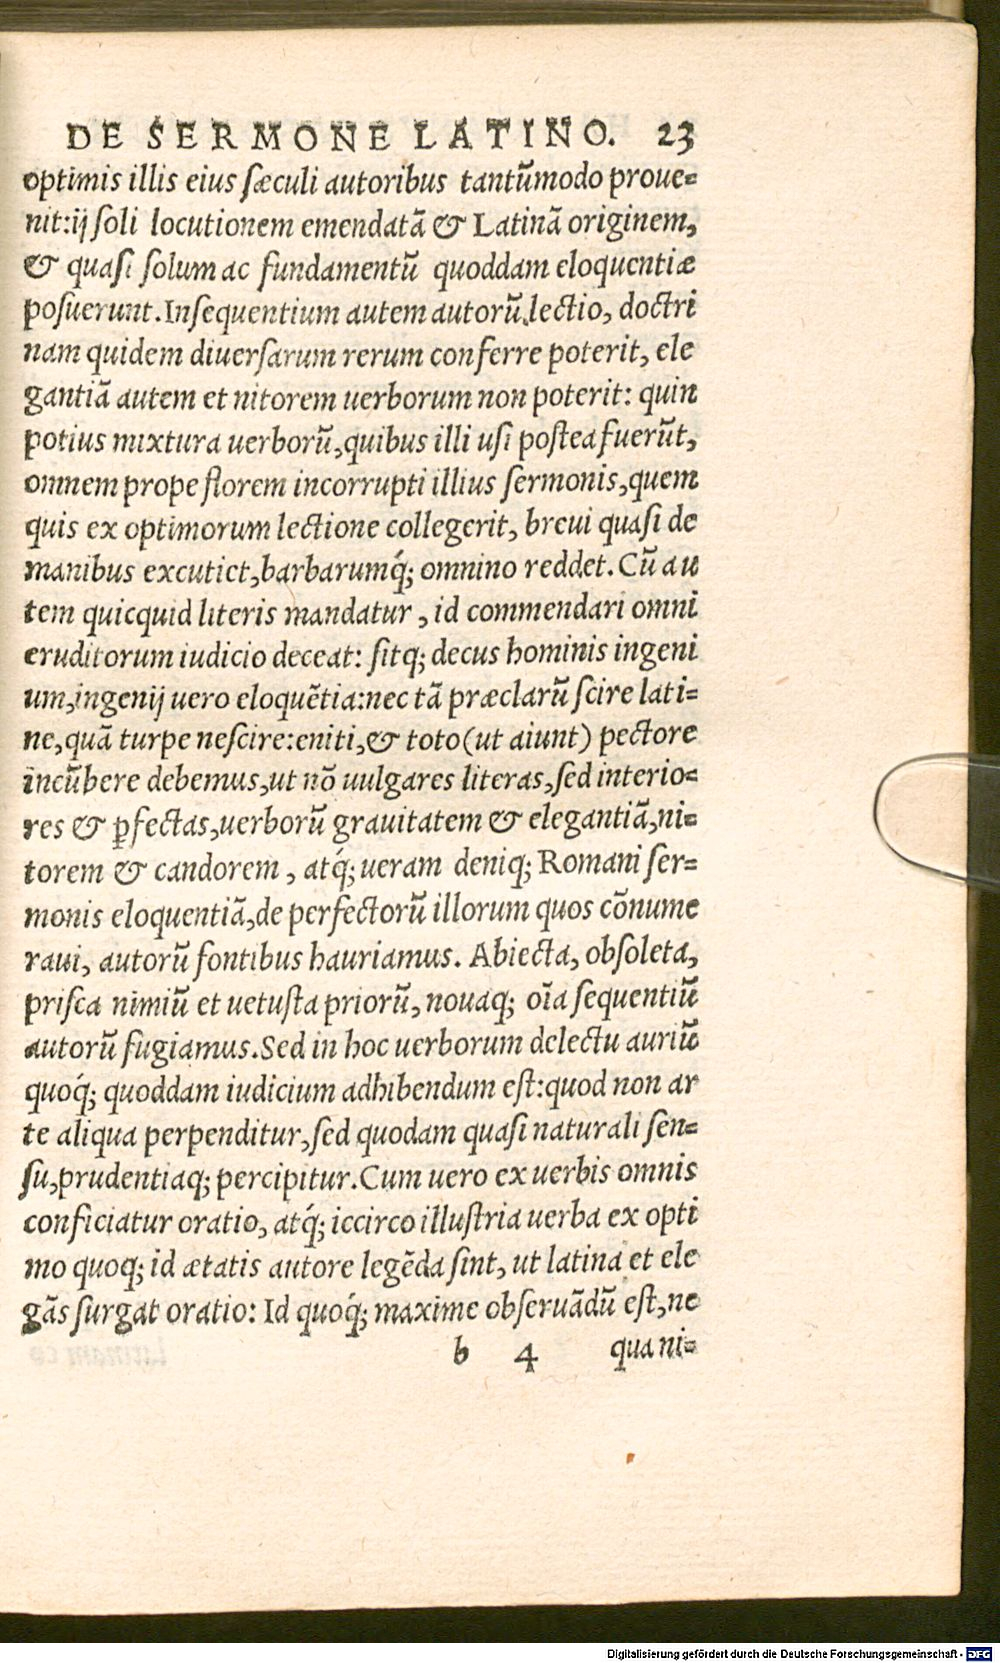 DE SERMONE LATINO. 23
optimis illis eius sæculi autoribus tantũmodo proue=
nit:ij soli locutionem emendatã & Latinã originem,
& quasi solum ac fundamentũ quoddam eloquentiæ
posuerunt.Insequentium autem autorũ lectio, doctri
nam quidem diuersarum rerum conferre poterit, ele
gantiã autem et nitorem uerborum non poterit: quin
potius mixtura uerborũ,quibus illi usi postea fuerũt,
omnem prope florem incorrupti illius sermonis,quem
quis ex optimorum lectione collegerit, breui quasi de
manibus excutiet,barbarumq́; omnino reddet. Cũ au
tem quicquid literis mandatur , id commendari omni
eruditorum iudicio deceat: sitq; decus hominis ingeni
um,ingenij uero eloquẽtia:nec tã præclarũ scire lati=
ne,quã turpe nescire:eniti,& toto (ut aiunt) pectore
incũbere debemus,ut nõ uulgares literas,sed interio=
res & ꝑfectas,uerborũ grauitatem & elegantiã,ni=
torem & candorem , atq́; ueram deniq; Romani ser=
monis eloquentiã,de perfectorũ illorum quos cõnume
raui, autorũ fontibus hauriamus. Abiecta, obsoleta,
prisca nimiũ et uetusta priorũ, nouaq; oĩa sequentiũ
autorũ fugiamus.Sed in hoc uerborum delectu auriũ
quoq́; quoddam iudicium adhibendum est:quod non ar
te aliqua perpenditur,sed quodam quasi naturali sen=
su,prudentiaq; percipitur.Cum uero ex uerbis omnis
conficiatur oratio, atq́; iccirco illustria uerba ex opti
mo quoq; id ætatis autore legẽda sint, ut latina et ele
gãs surgat oratio: Id quoq́; maxime obseruãdũ est,ne
b 4 qua ni=
Digitalisierung gefördert durch die Deutsche Forschungsgemeinschaft - DFG